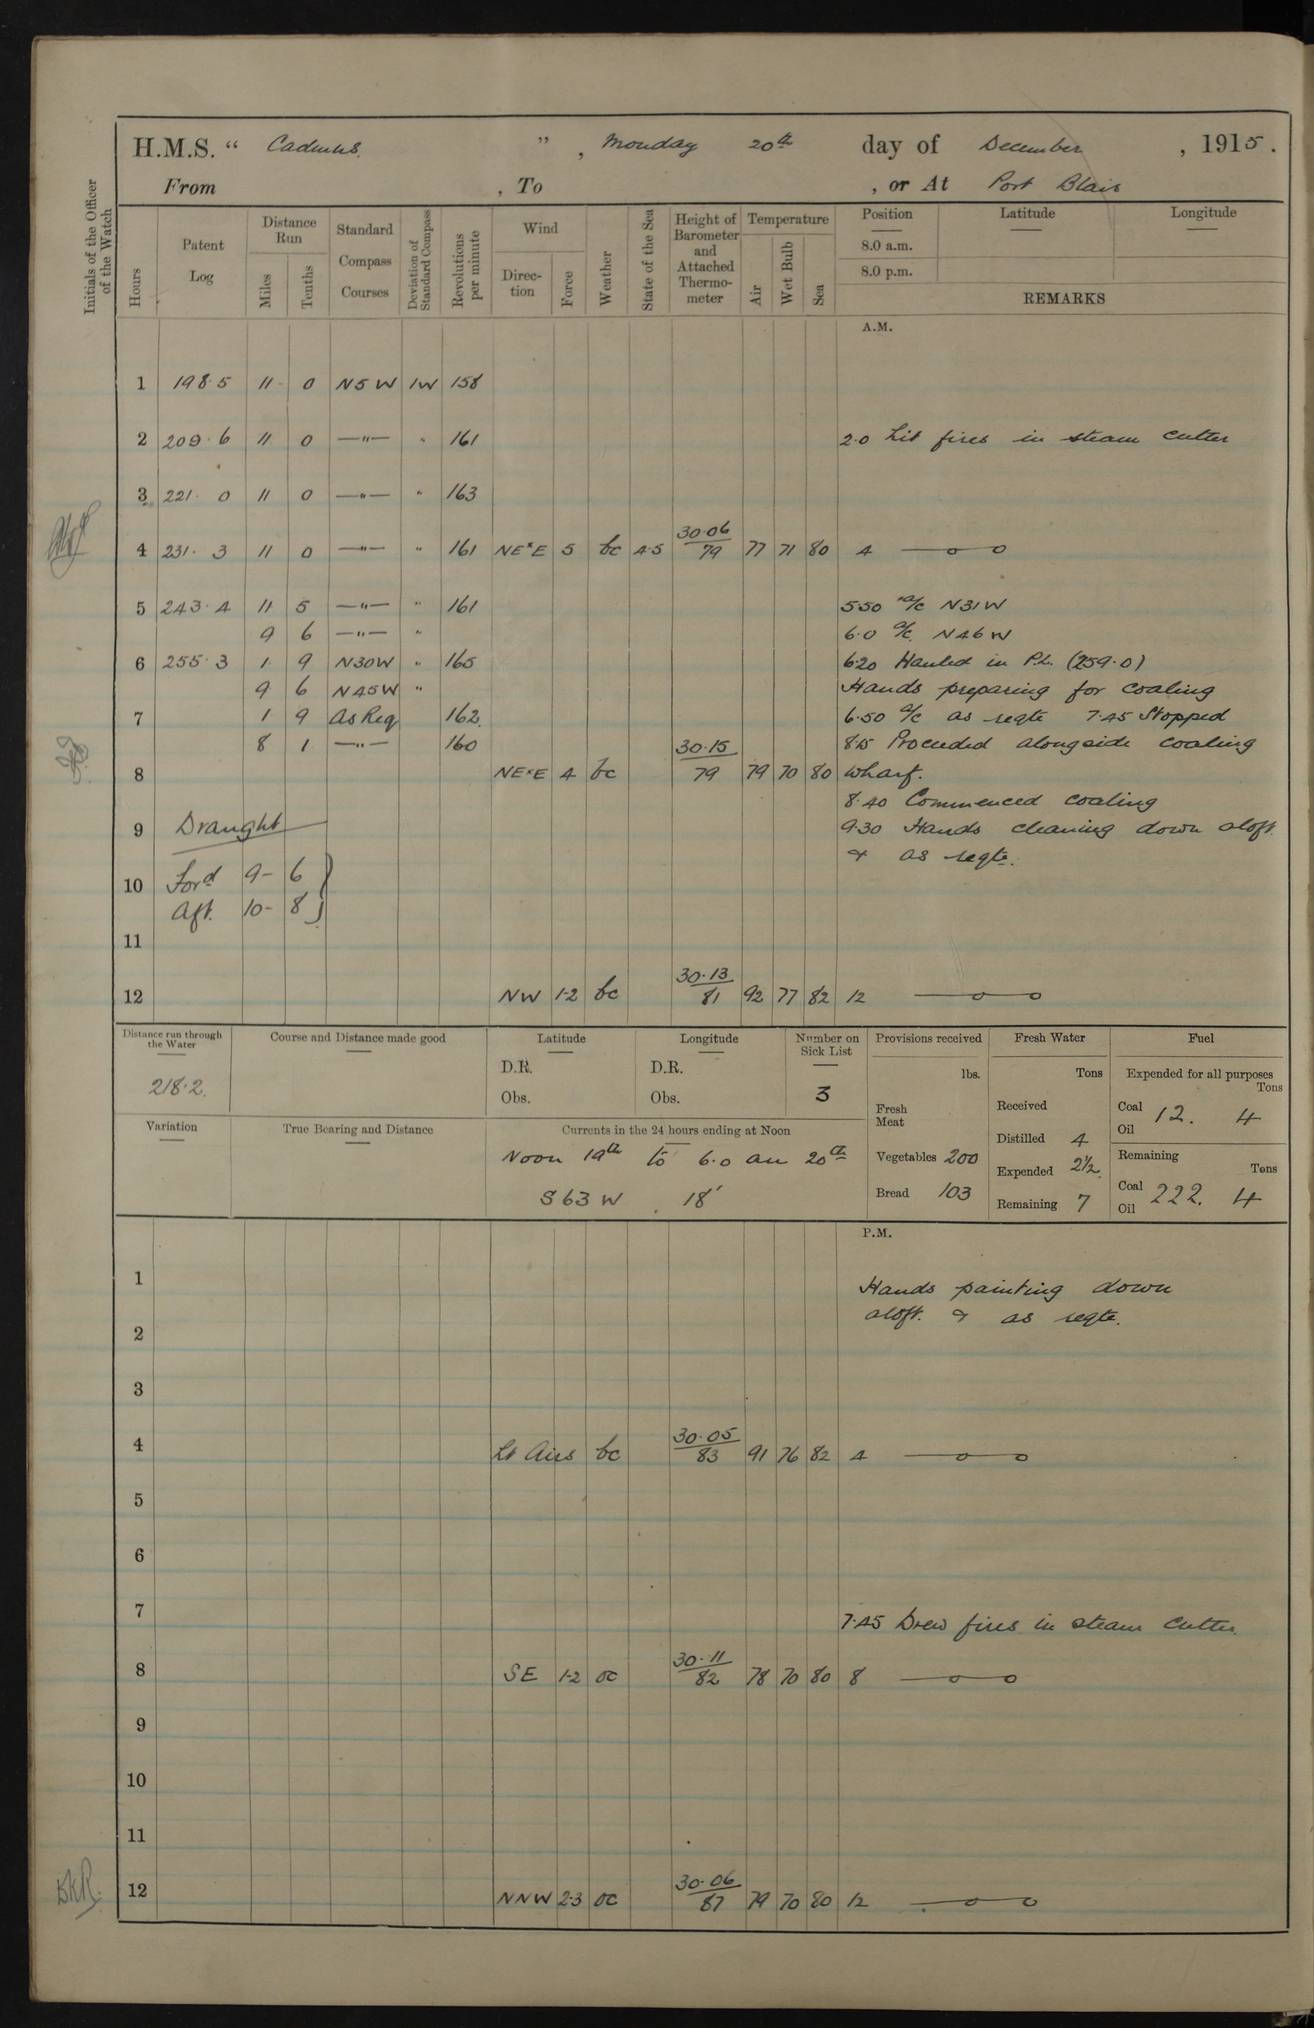 H.M.S. “ Cadmus. ” , Monday 20th day of December , 1915.
From , To , or At Port Blair
Initials of the Officer of the Watch
Hours
Patent Log
Distance Run
Miles
Tenths
Standard Compass Courses
Deviation of Standard Compass
Revolutions per minute
Wind
Direc-tion
Force
Weather
State of the Sea
Height of Barometer and Attached Thermo-meter
Temperature
Air
Wet Bulb
Sea
Position Latitude Longitude
8.0 a.m.
8.0 p.m.
REMARKS
A.M.
1 198.5 11 0 N5W 1W 158
2 209.6 11 0 —"— " 161 2.0 Lit fires in steam cutter
3 221. 0 11 0 —"— " 163
30.06
4 231. 3 11 0 —"— " 161 NExE 5 bc 4.5 79 77 71 80 4 —o—o
5 243.4 11 5 —"— " 161 5.50 a/c N31W
9 6 —"— " 6.0 a/c N46W
6 255.3 1 9 N30W " 165 6.20 Hauled in P.L. (259.0)
9 6 N45W " Hands preparing for coaling
7 1 9 As Req 162 6.50 a/c as reqte 7.45 Stopped
8 1 —"— 160 30.15 8.15 Proceeded alongside coaling
8 NExE 4 bc 79 79 70 80 wharf.
8.40 Commenced coaling
9 Draught 9.30 Hands cleaning down aloft
& as reqte.
10 Ford 9- 6 }
Aft. 10- 8
11
30.13
12 NW 1-2 bc 81 92 77 82 12 —o—o
Distance run through the Water
218.2
Course and Distance made good
Latitude
D.R.
Obs.
Longitude
D.R.
Obs.
Number on Sick List
3
Provisions received
lbs.
Fresh Meat
Vegetables 200
Bread 103
Fresh Water
Tons
Received
Distilled 4
Expended 2½
Remaining 7
Fuel
Expended for all purposes
Tons
Coal 12. 4
Oil
Remaining
Tons
Coal 222. 4
Oil
Variation
True Bearing and Distance
Currents in the 24 hours ending at Noon
Noon 19th to 6.0 am 20th
S 63 W 18'
P.M.
1 Hands painting down
aloft. & as reqte.
2
3
30.05
4 Lt Airs bc 83 91 76 82 4 —o—o
5
6
7 7.45 Drew fires in steam cutter.
30.11
8 SE 1-2 oc 82 78 70 80 8 —o—o
9
10
11
30.06
BKR. 12 NNW 2-3 oc 87 79 70 80 12 —o—o